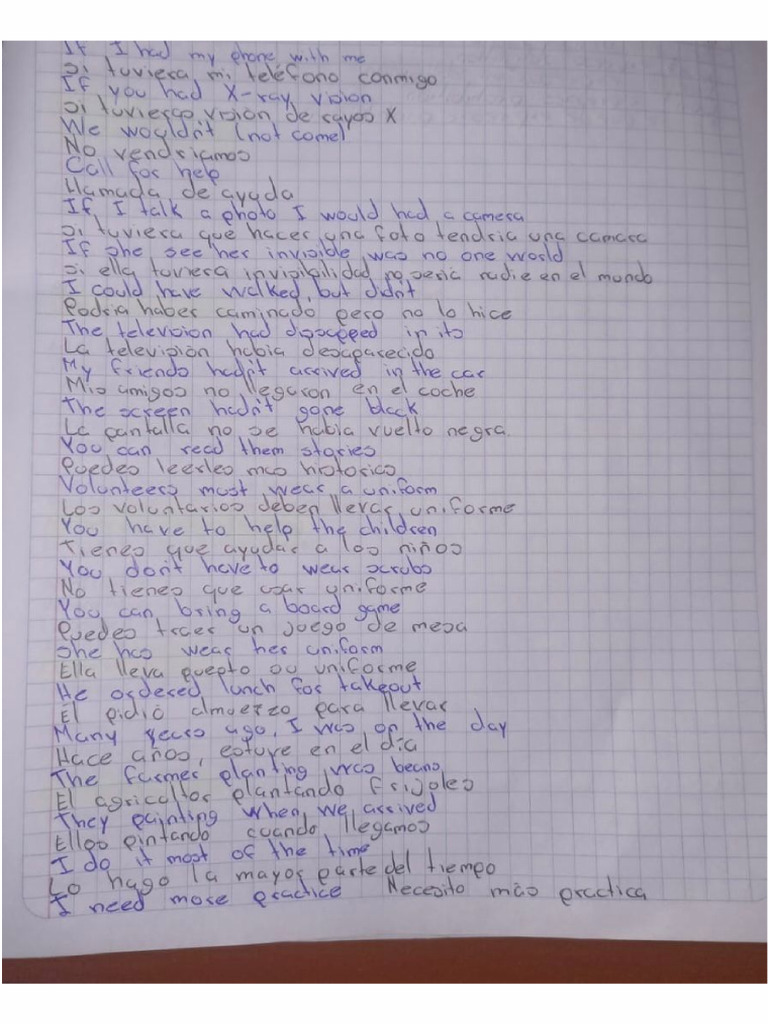 If I had my phone with me
Si tuviera mi teléfono conmigo
If you had X-ray vision
Si tuvieras visión de rayos X
We wouldn't (not come)
No vendriamos
Call for help
Llamada de ayuda
If I talk a photo I would had a camera
Si tuviera que hacer una foto tendria una camara
If she see her invisible was no one world
Si ella tuviera invisibilidad no seria nadie en el mundo
I could have walked, but didn't
Podria haber caminado pero no lo hice
The television had in its
La televisión habia desaparecido
My friends hadn't arrived in the car
Mis amigos no llegaron en el coche
The screen hadn't gone black
La pantalla no se habia vuelto negra
You can read them stories
Puedes leerles mas historias
Volunteers must wear a uniform
Los voluntarios deben llevar uniforme
You have to help the children
Tienes que ayudar a los niños
You don't have to wear scrubs
No tienes que usar uniforme
You can bring a board game
Puedes traer un juego de mesa
She has wear her uniform
Ella lleva puesto su uniforme
He ordered lunch for takeout
El pidió almuerzo para llevar
Many years ago, I was on the day
Hace años, estuve en el día
The farmer planting was beans
El agricultor plantando frijoles
They painting when we arrived
Ellos pintando cuando llegamos
I do it most of the time
Lo hago la mayor parte del tiempo
I need more practice Necesito más practica